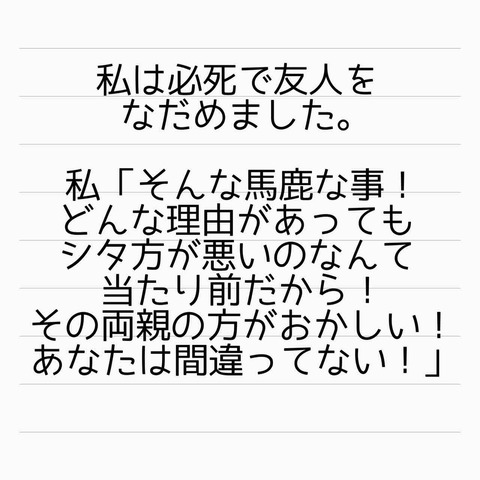 私は必死で友人を
なだめました。
私「そんな馬鹿な事！
どんな理由があっても
シタ方が悪いのなんて
当たり前だから！
その両親の方がおかしい！
あなたは間違ってない！」